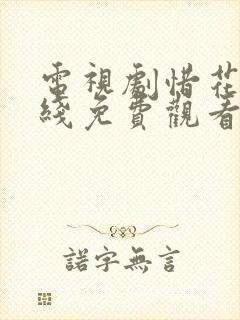 電視劇惜花
綫免費觀看
諾字無言